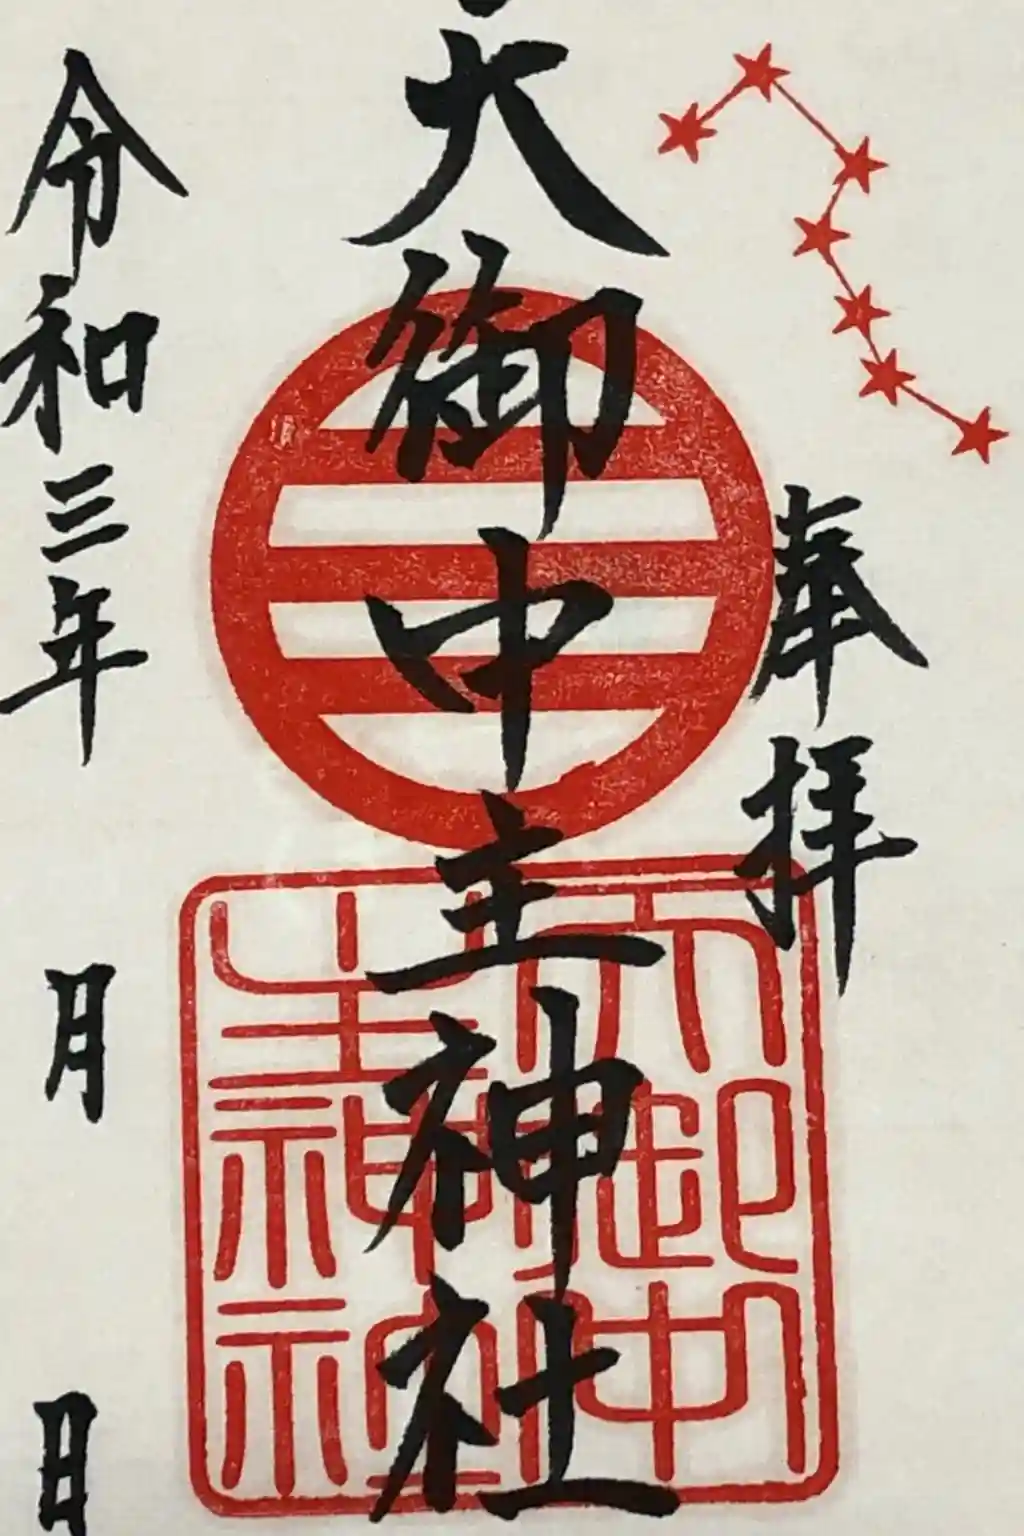 奉拝
天御中主神社
令和三年 月 日
天御中
主神社